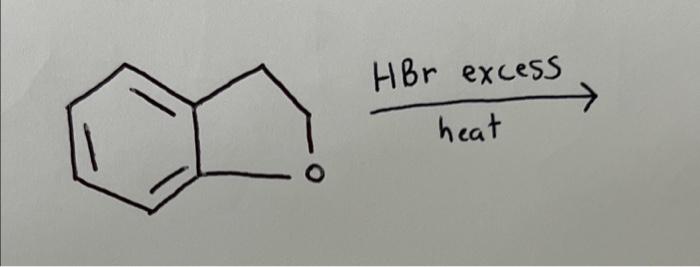 HBr excess
heat
O